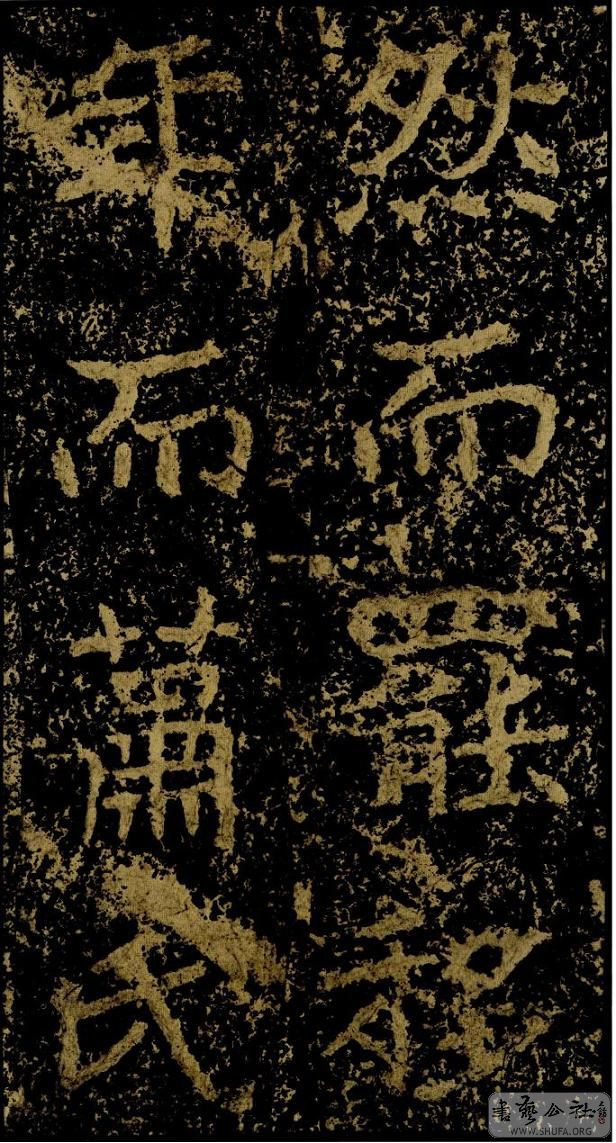 然而罷程
年而蕭氏
書藝公社
WWW.SHUFA.ORG